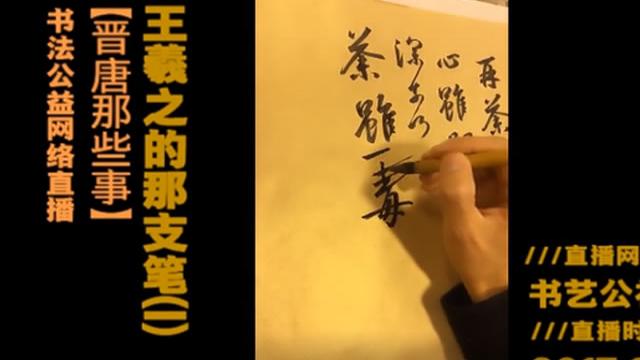 王羲之的那支笔(一)
【晋唐那些事】
书法公益网络直播
再荼
心雖
深
荼雖一毒
///直播网
书艺公
///直播时